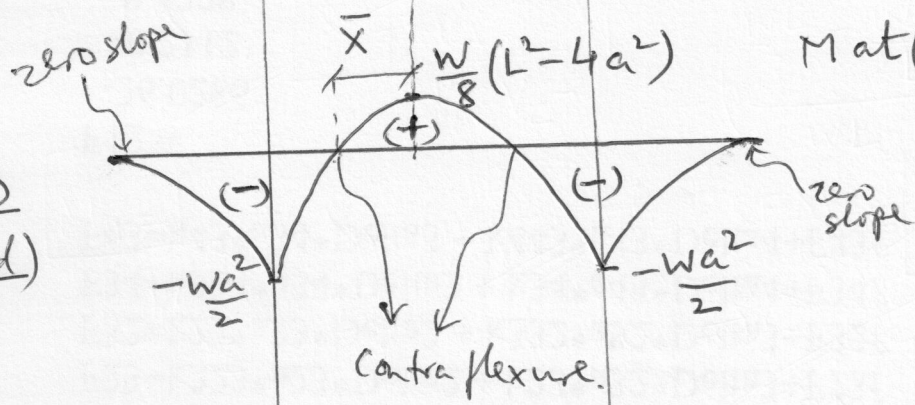 zero slope
X̄
W/8 (L² - 4a²)
Mat
(+)
(-)
(-)
zero
slope
-wa²/2
-wa²/2
Contraflexure.